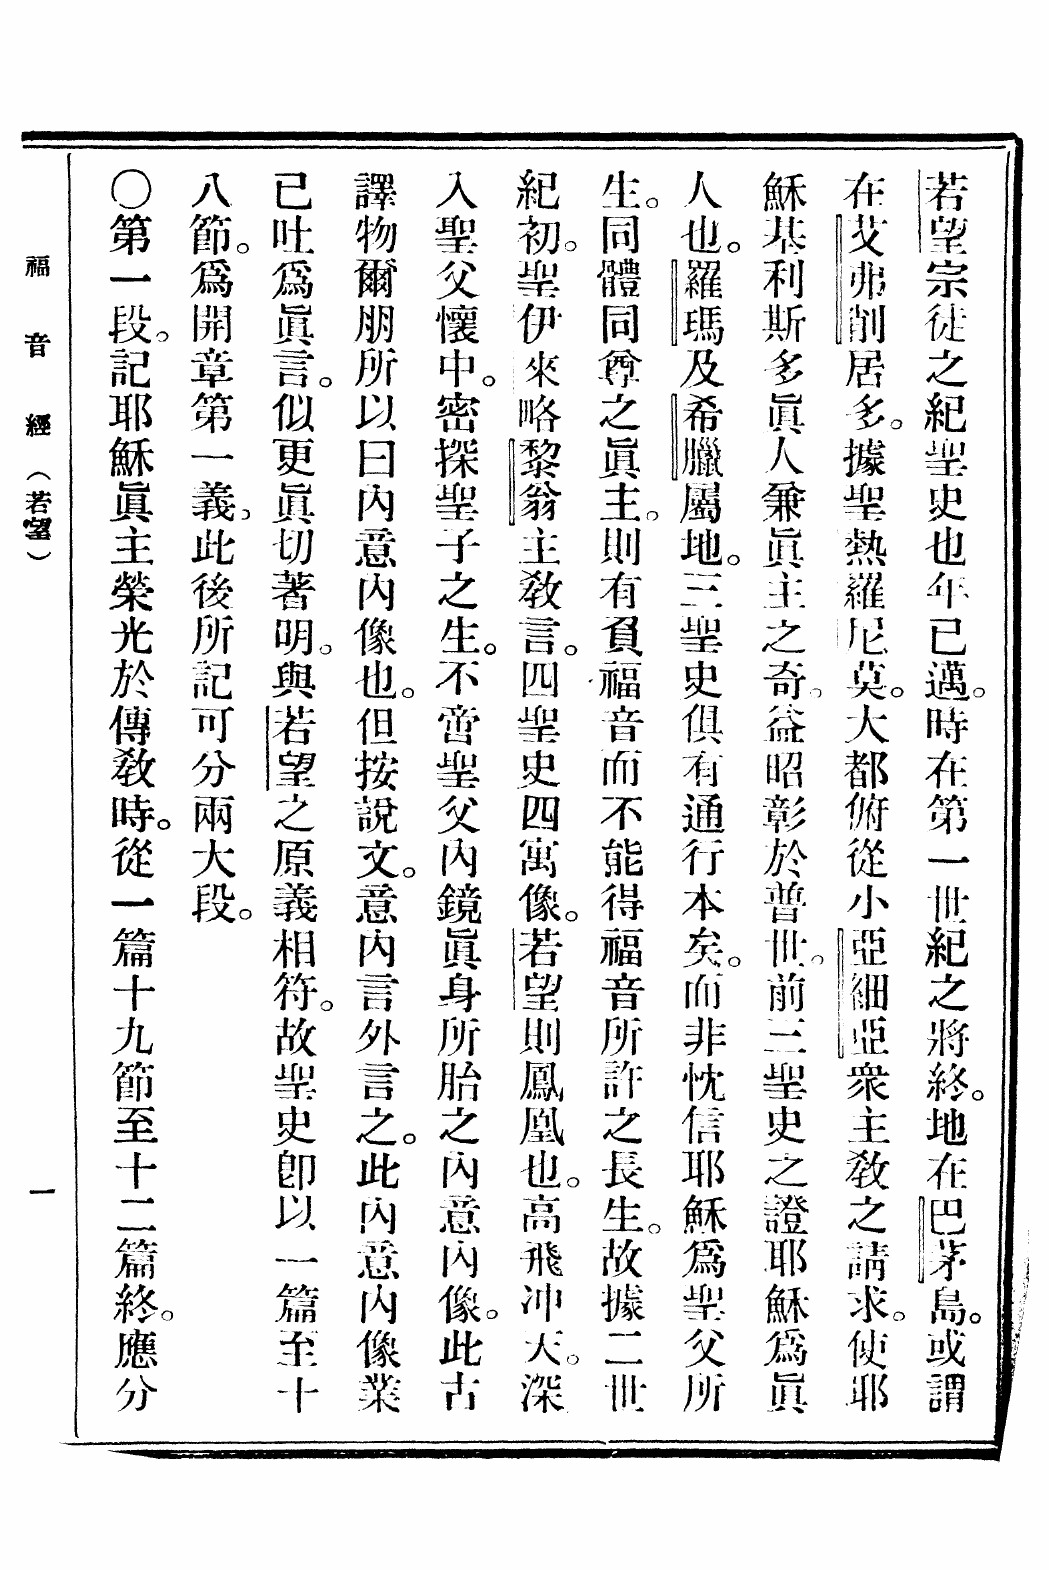 若望宗徒之紀聖史也年已邁。時在第一世紀之將終。地在巴茅島。或謂
在艾弗削居多。據聖熱羅尼莫。大都俯從小亞細亞衆主敎之請求。使耶
穌基利斯多眞人兼眞主之奇。益昭彰於普世。前三聖史之證耶穌爲眞
人也。羅瑪及希臘屬地。三聖史俱有通行本矣。而非忱信耶穌爲聖父所
生。同體同尊之眞主。則有負福音而不能得福音所許之長生。故據二世
紀初。聖伊來略黎翁主敎言。四聖史四寓像。若望則鳳凰也。高飛冲天。深
入聖父懷中。密探聖子之生。不啻聖父內鏡眞身所胎之內意內像。此古
譯物爾朋所以曰內意內像也。但按說文。意內言外言之。此內意內像業
已吐爲眞言。似更眞切著明。與若望之原義相符。故聖史卽以一篇至十
八節。爲開章第一義。此後所記可分兩大段。
〇第一段。記耶穌眞主榮光於傳敎時。從一篇十九節至十二篇終。應分
福音經（若望）
一